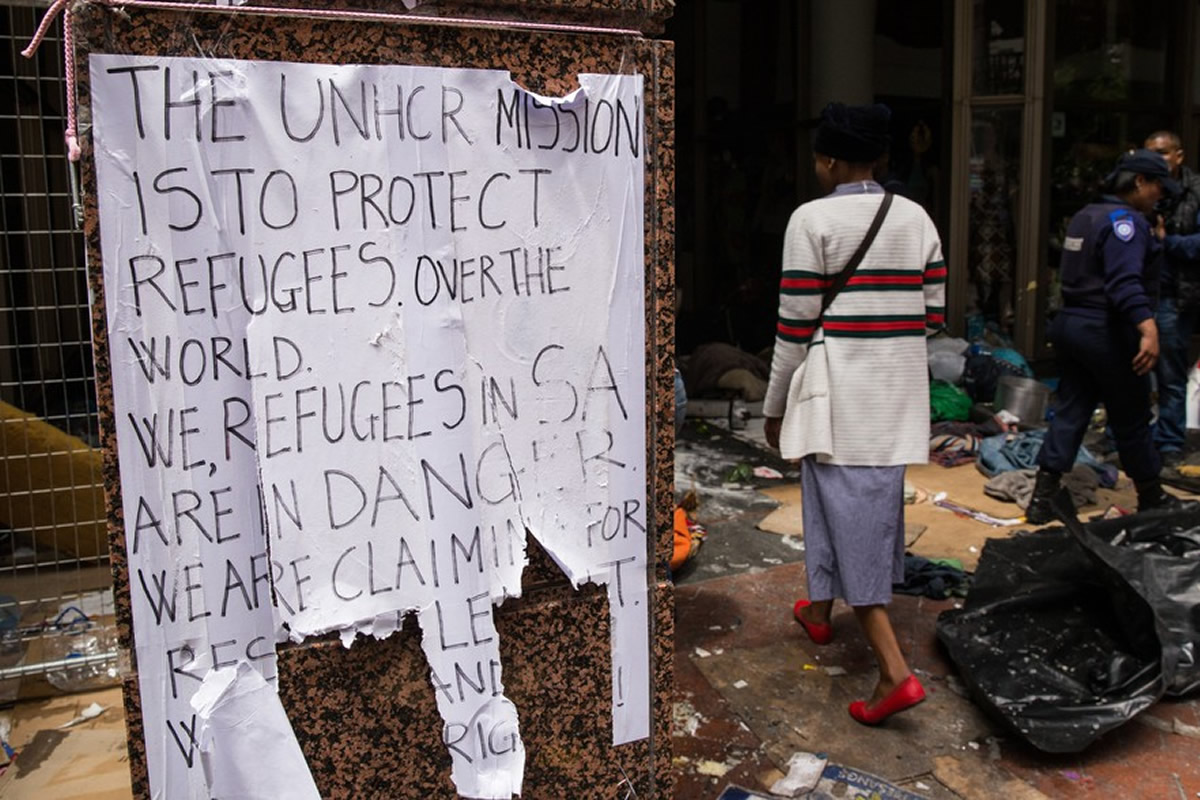 THE UNHCR MISSION
IS TO PROTECT
REFUGEES. OVER THE
WORLD.
WE, REFUGEES IN SA
ARE IN DANGER.
WE ARE CLAIMIN FOR
RES LE T.
AND !
W RIG